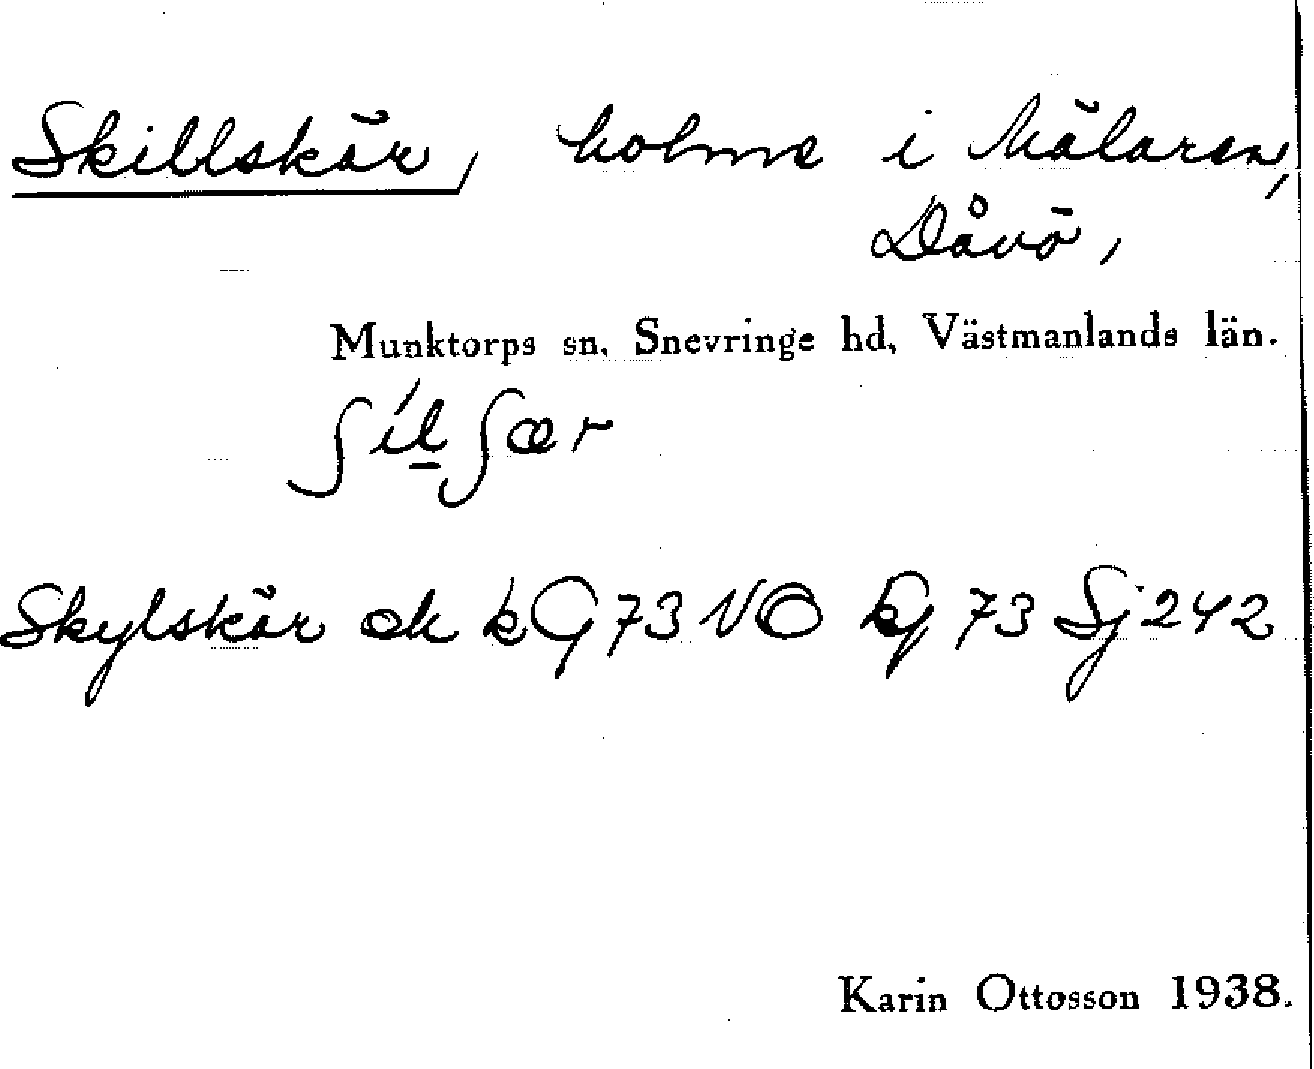 Skillskär, holme i Mälaren,
Dåvö,
Munktorps sn, Snevringe hd, Västmanlands län.
ʃíl̲ʃær
Skylskär ek kG 73 NO kg 73 Sj 242
Karin Ottosson 1938.